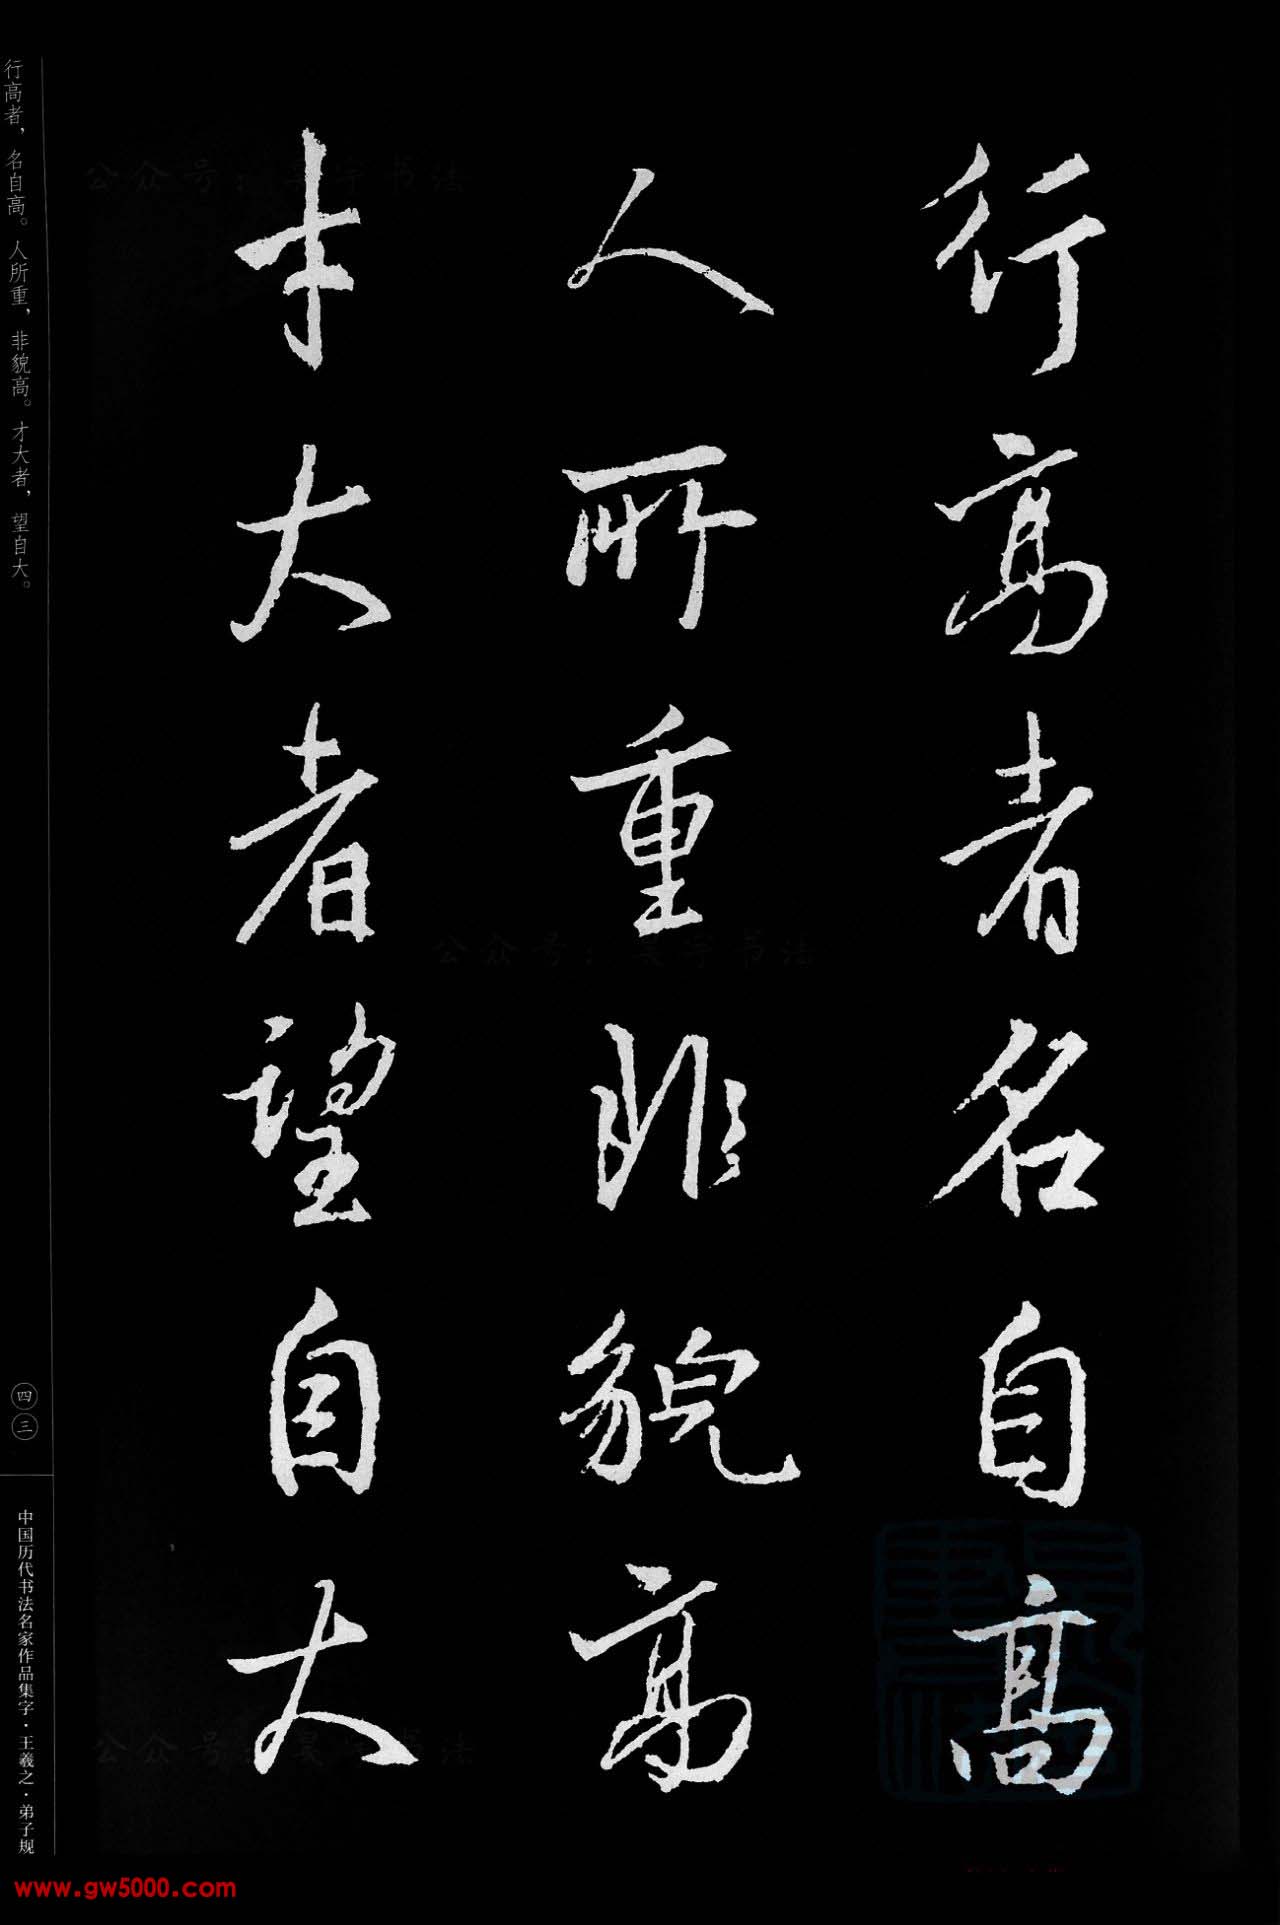 行高者名自高
人所重非貌高
才大者望自大
行高者，名自高。人所重，非貌高。才大者，望自大。
四三
中国历代书法名家作品集字·王羲之·弟子规
公众号：昊宇书法
公众号：昊宇书法
公众号：昊宇书法
www.gw5000.com